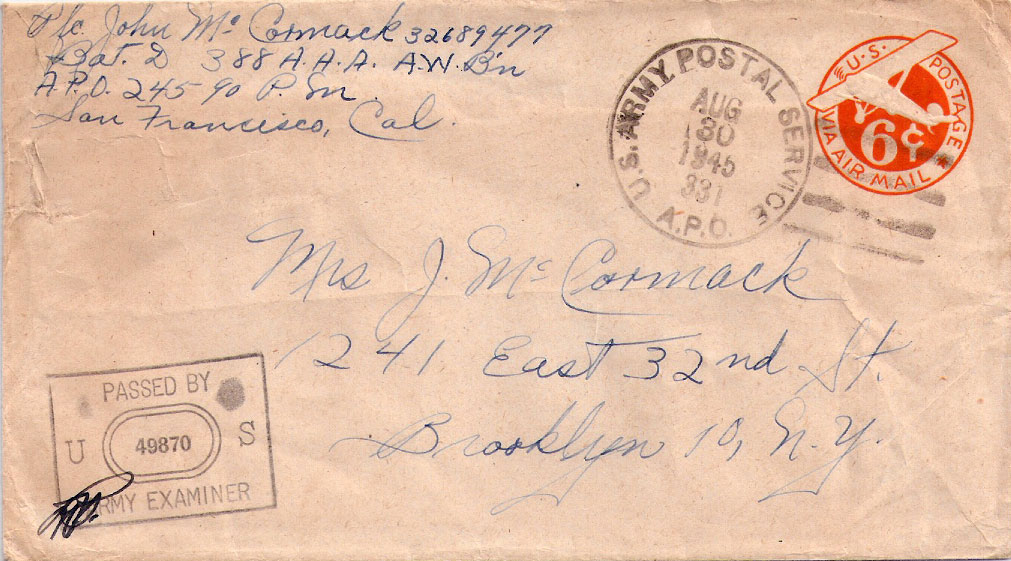 Pfc. John Mc Cormack 32689477
Bat. D 388 A.A.A. A.W. B'n
A.P.O. 245-90 P.M.
San Francisco, Cal.
U.S. ARMY POSTAL SERVICE
AUG
30
1945
331
A.P.O.
U.S. POSTAGE
6¢
VIA AIR MAIL
Mrs J. Mc Cormack
1241 East 32nd St.
Brooklyn 10, N.Y.
PASSED BY
U 49870 S
ARMY EXAMINER